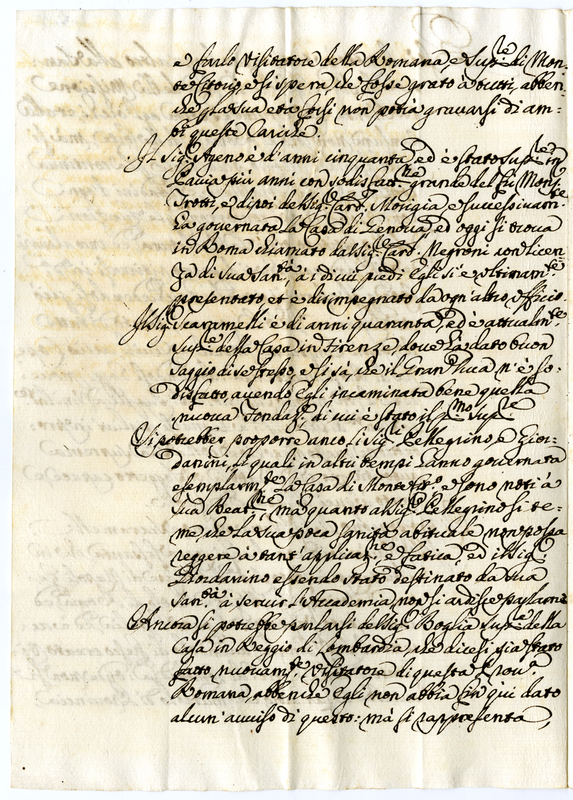 e farlo Visitatore della Romana, e Sup.re di Mon-
te Citorio e si spera, che fosse grato à tutti, abben-
che p la sua età forsi non potria gravarsi di am-
bi queste Cariche.
Il Sig.r Ayeno è d'anni cinquanta, ed è stato Sup.re in
Pavia più anni con sodisfat.ne grande del fù Mons.r
Trotti, e dipoi del Sig.r Card. Morigia, e successivam.te
hà governata la Casa di Genova, ed oggi si trova
in Roma chiamato dal Sig.r Card. Negroni con licen-
za di Sua San.tà, à i di cui piedi Egli si è ultimam.te
presentato et è disimpegnato da ogn'altro Officio.
Il Sig.r Scaramelli è di anni quaranta, ed è attualm.te
Sup.re della Casa in Firenze, dove hà dato buon
saggio di se stesso, e si sà, che il Gran Duca n'è so-
disfatto avendo Egli incaminata bene quella
nuova fondaz.e, di cui è stato il p.mo Sup.re
Si potrebber proporre anco li Sig.ri Pellegrino, e Gior-
danini, li quali in altri tempi hanno governata
esemplarm.te la Casa di Monte Cit.o e sono noti à
Sua Beat.ne, mà quanto al Sig.r Pellegrino si te-
me che la sua poca sanità abituale non possa
reggere à tant'applicaz.ne, e fatica, ed il Sig.r
Giordanino essendo stato destinato da Sua
San.tà à servir l'Accademia, non si ardisce parlarne
Ancora si potrebbe parlarsi del Sig.r Boglia Sup.re della
Casa in Reggio di Lombardia, che dicesi sia stato
fatto nuovam.te Visitatore di questa Prov.a
Romana, abbenche Egli non abbia fin qui dato
alcun'avviso di questo: mà si rappresenta,